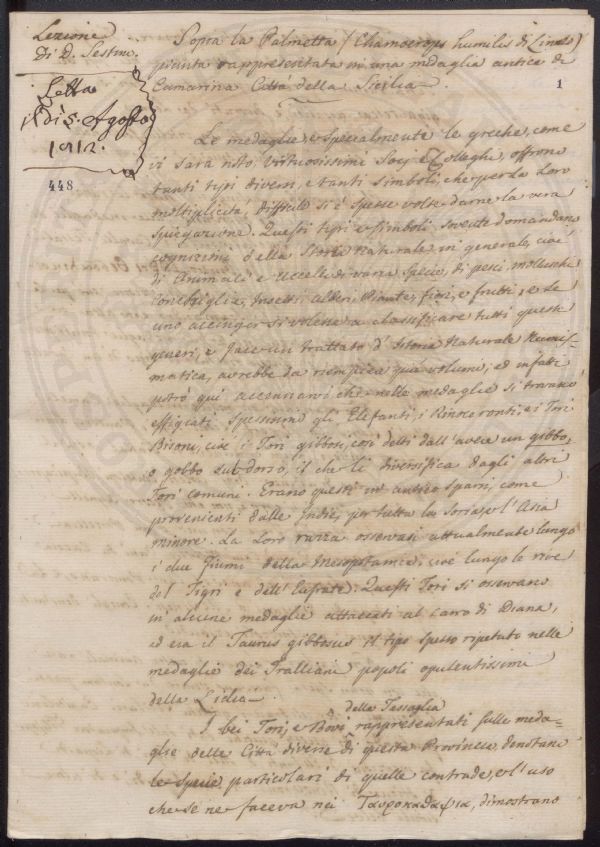 Lezione
Di D. Sestini.
Letta
il dì 5. Agosto
1812.
448
1
Sopra la Palmetta (Chamoerops humilis di Linneo)
pianta rappresentata in una medaglia antica di
Camarina Città della Sicilia.
Le medaglie, e specialmente le greche, come
vi sarà noto, Virtuosissimi Socj e Colleghi, offrono
tanti tipi diversi, e tanti simboli, che per la loro
moltiplicità, difficile si è spesse volte darne la vera
spiegazione. Questi tipi e simboli, sovente domandano
cognizioni della Storia Naturale in generale, cioè
di Animali e Uccelli di varia specie, di pesci, mollusche
conchiglie, Insetti, Alberi, Piante, fiori, e frutti, e se
uno accinger si volesse a classificare tutti questi
generi, e fare un trattato d'Istoria Naturale Numis-
matica, avrebbe da riempiere più volumi, ed infatti
potrò quì accennarvi che nelle medaglie si trovano
effigiati spessissimo gli Elefanti, i Rinoceronti, e i Tori
Bisoni, cioè i Tori gibbosi, così detti dall'avere un gibbo,
o gobbo sul dorso, il che li diversifica dagli altri
Tori comuni. Erano questi in antico sparsi, come
provenienti dalle Indie, per tutta la Soria, e l'Asia
minore. La loro razza osservasi attualmente lungo
i due fiumi della Mesopotamia, cioè lungo le rive
del Tigri e dell'Eufrate. Questi Tori si osservano
in alcune medaglie attaccati al carro di Diana,
ed era il Taurus gibbosus il tipo spesso ripetuto nelle
medaglie dei Tralliani popoli opulentissimi
della Lidia.
della Tessaglia
I bei Tori, e Bovi rappresentati sulle meda-
glie delle Città diverse di questa Provincia, denotano
le specie particolari di quelle contrade, e l'uso
che se ne faceva nei Ταυροκαθαψια, dimostrano